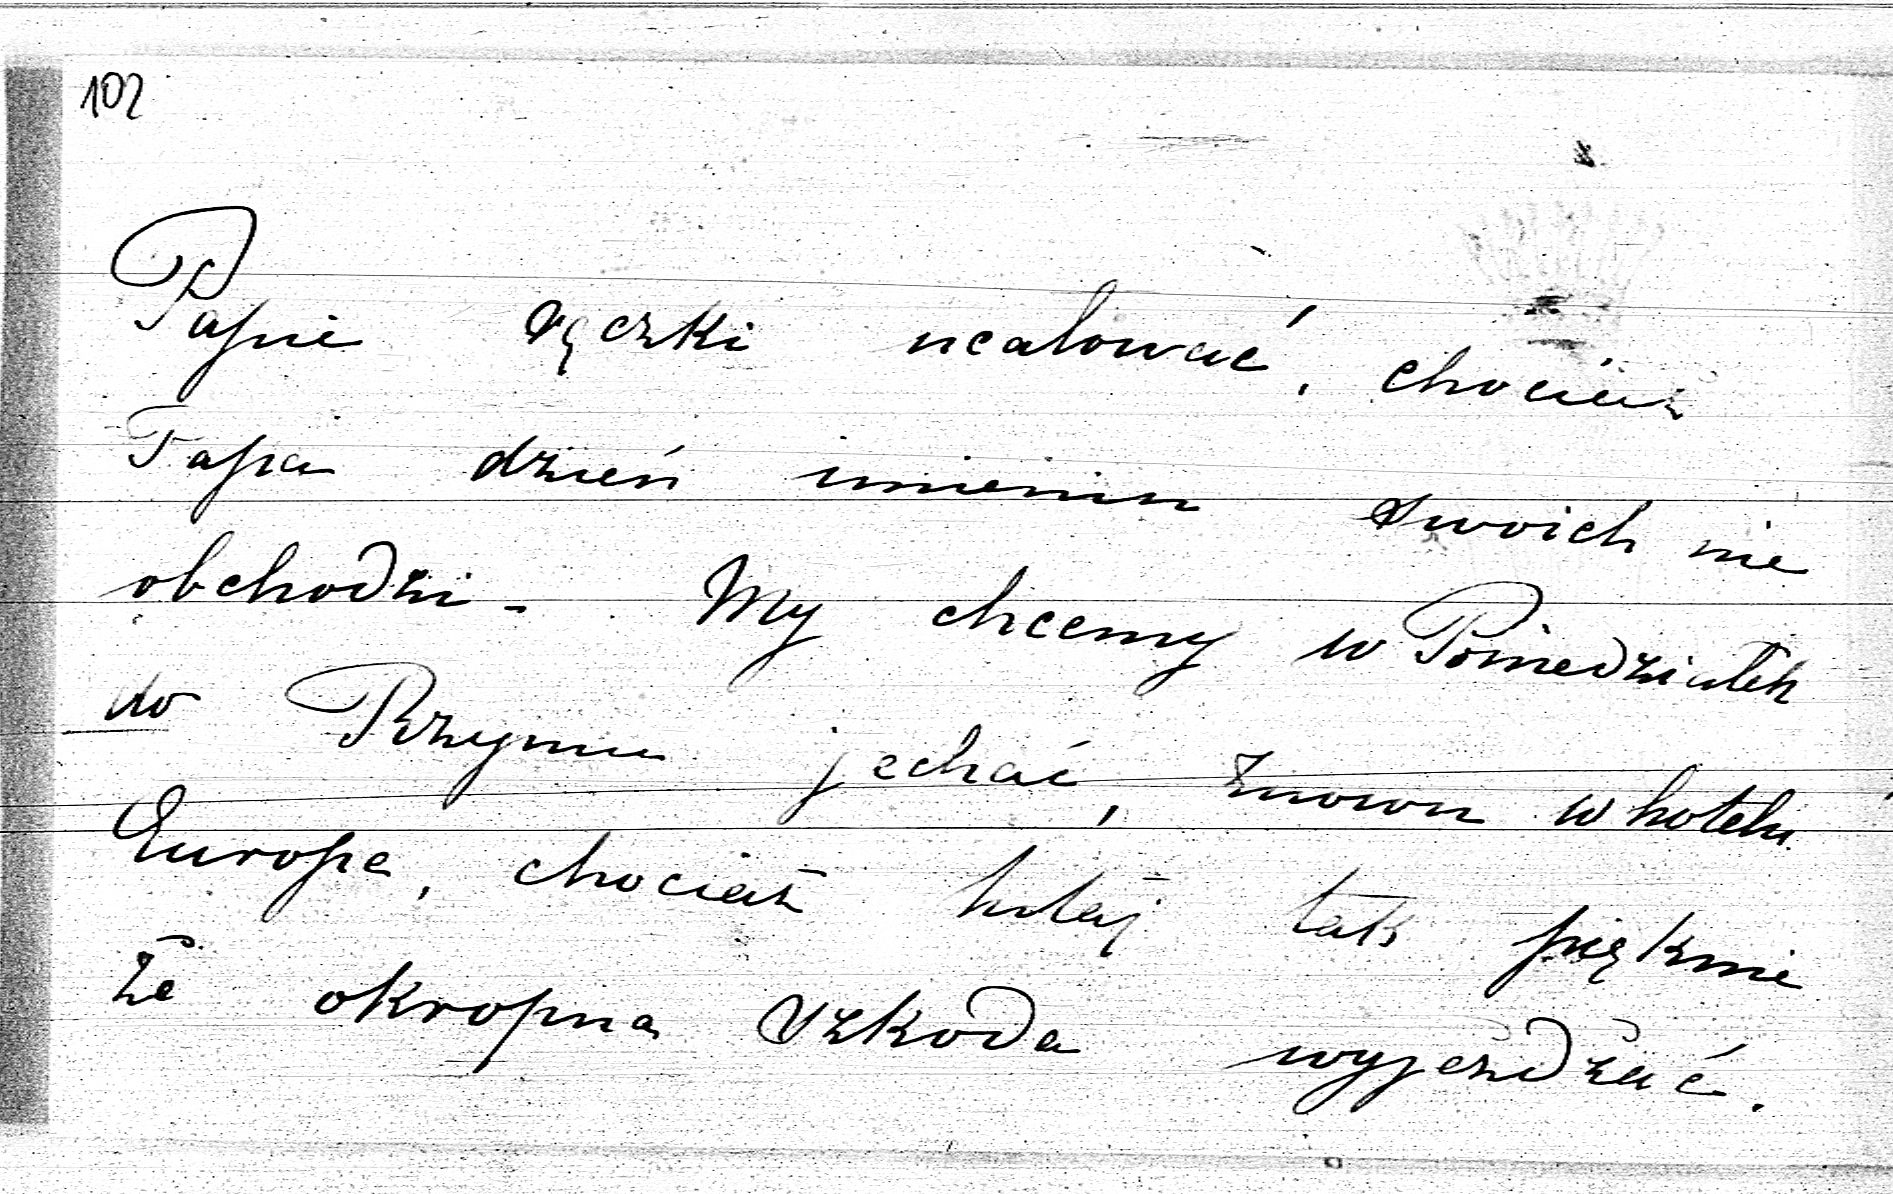 102
Papie rączki ucałować, chociaż
Papa dzień imienin swoich nie
obchodzi - My chcemy w Poniedziałek
do Rzymu jechać, znowu w hotelu
Europe, chociaż tutaj tak pięknie
że okropna szkoda wyjeżdżać.